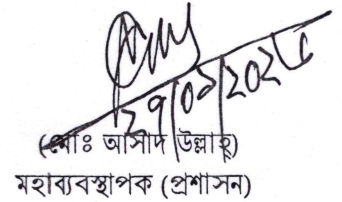 ২৭/০৯/২০২৫
(মোঃ আসাদ উল্লাহ্)
মহাব্যবস্থাপক (প্রশাসন)